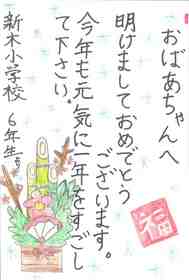 おばあちゃんへ
明けましておめでとう
ございます。
今年も元気に一年をすごし
て下さい。
新木小学校 6年生より
福